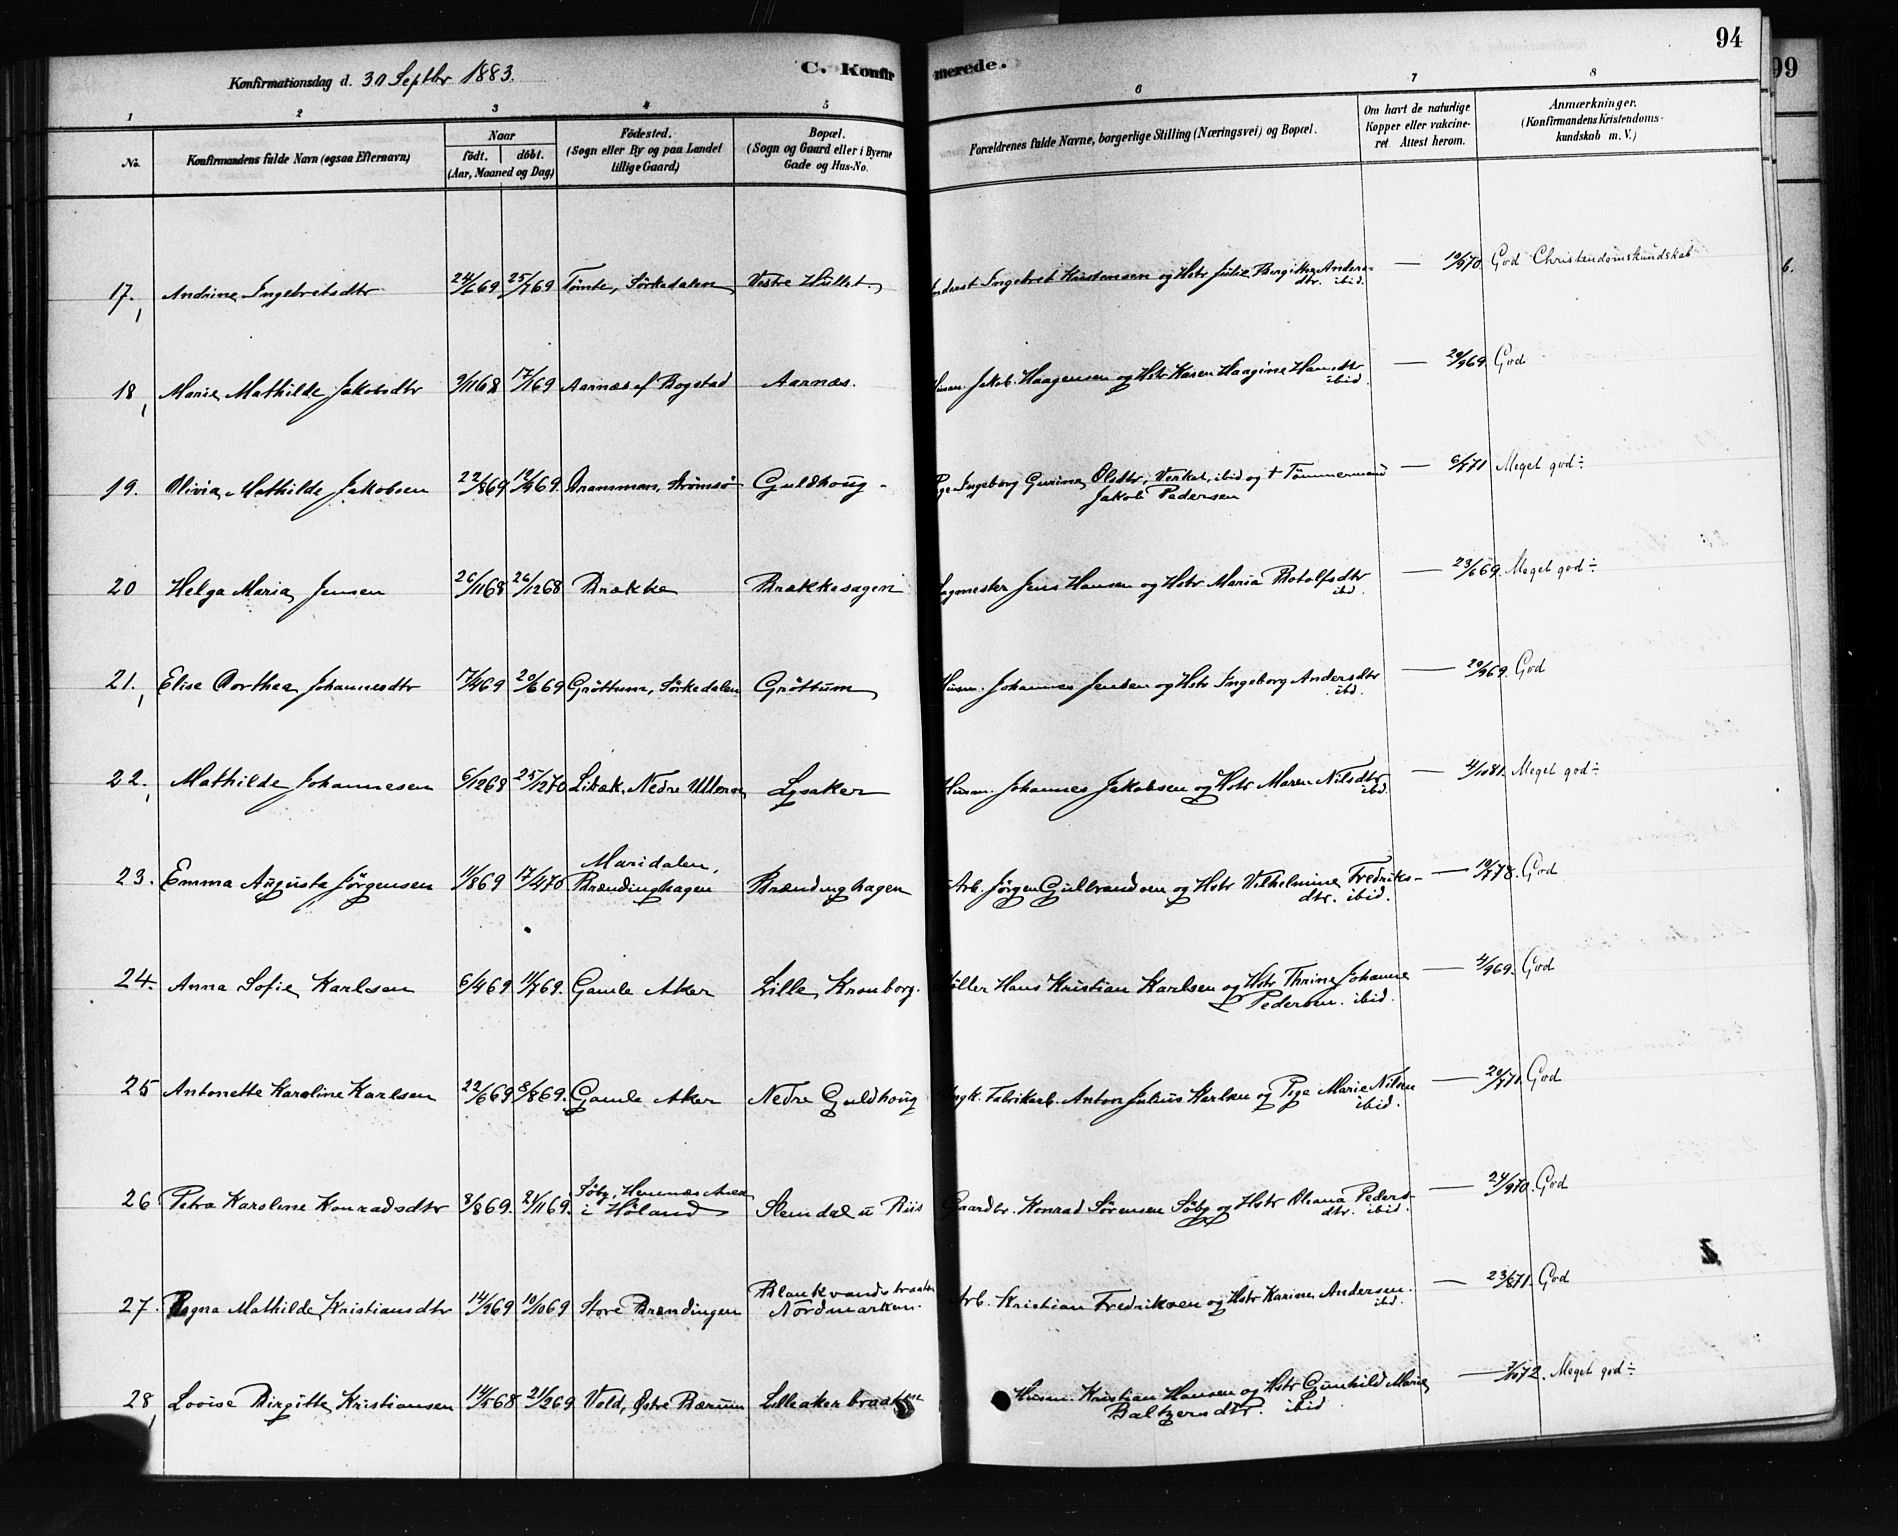 94
99
Konfirmationsdag d. 30 Septbr 1883.
C. Konfirmerede.
1 2 3 4 5 6 7 8
No.
Konfirmandens fulde Navn (ogsaa Efternavn)
Naar
födt. döbt.
(Aar, Maaned og Dag)
Födested.
(Sogn eller By og paa Landet
tillige Gaard)
Bopæl.
(Sogn og Gaard eller i Byerne
Gade og Hus-No.
Forældrenes fulde Navne, borgerlige Stilling (Næringsvei) og Bopæl.
Om havt de naturlige
Kopper eller vakcine-
ret Attest herom.
Anmærkninger.
(Konfirmandens Kristendoms-
kundskab m. V.)
17. Andrine Ingebretsdtr 24/6 69 25/7 69 Tömte, Sörkedalen Vestre Hullet. Ingebret Kristensen og Hstr Julie Bergitte Anders-
dtr. ibid. — 10/9 70. God Christendomskundskab
18 Marie Mathilde Jakobsdtr 9/11 68 17/1 69 Aarnæs u/ Bogstad Aarnæs. Husm. Jakob Haagensen og Hstr Karen Haagine Hansdtr
ibid. — 20/9 69. God
19. Olivia Mathilde Jakobsen 22/8 69 12/9 69. Drammen, Strömsö Guldhoug - Pige Ingeborg Gurine Olsdtr, ibid og † Tömmermand
Jakob Pedersen — 6/7 71 Meget god ÷
20 Helga Maria Jensen 26/11 68 26/12 68 Brække Brækkesagen Sagmester Jens Hansen og Hstr Maria Botolfsdtr
ibd. — 23/6 69. Meget god ÷
21. Elise Dorthea Johannesdtr 17/4 69 20/6 69 Gröttum, Sörkedalen Gröttum Husm. Johannes Jensen og Hstr Ingeborg Andersdtr
ibd. — 20/9 69. God
22. Mathilde Johannesen 6/12 68 25/12 70 Nedre Ullern Lysaker Husm. Johannes Jakobsen og Hstr Maren Nilsdtr
ibid. — 4/10 81. Meget god ÷
23. Emma Augusta Jörgensen 11/8 69 17/4 70 Maridalen,
Brændinghagen Brændinghagen Arb. Jörgen Gulbrandsen og Hstr Vilhelmine Fredriks-
dtr. ibid. — 10/7 78. God
24. Anna Sofie Karlsen 6/4 69 11/7 69. Gamle Aker Lille Kronborg. Möller Hans Kristian Karlsen og Hstr Thrine Johanne
Pedersen. ibid. — 4/9 69. God
25 Antonette Karoline Karlsen 22/6 69 8/8 69. Gamle Aker Nedre Guldhoug Ungk. Fabrikarb. Anton Julius Karlsen og Pige Marie Nilsen
ibid. — 20/7 71. God
26 Petra Karoline Konradsdtr 8/8 69. 21/11 69. Söby, Hemnæs
i Höland Slemdal u Riis Gaardbr. Konrad Sörensen Söby og Hstr Oleana Peders-
dtr. ibid. — 24/9 70. God
27. Ragna Mathilde Kristiansdtr 14/9 69 10/10 69 Store Brændingen Blankvandsbraaten
Nordmarken. Arb. Kristian Fredriksen og Hstr Karine Andersen.
ibd. — 23/8 71. God
28 Lovise Birgitte Kristiansen 14/5 68 21/2 69 Vold, Östre Bærum Lilleakerbraaten Husm. Kristian Hansen og Hstr Gunhild Marie
Baltzersdtr. ibid — 72. Meget god ÷